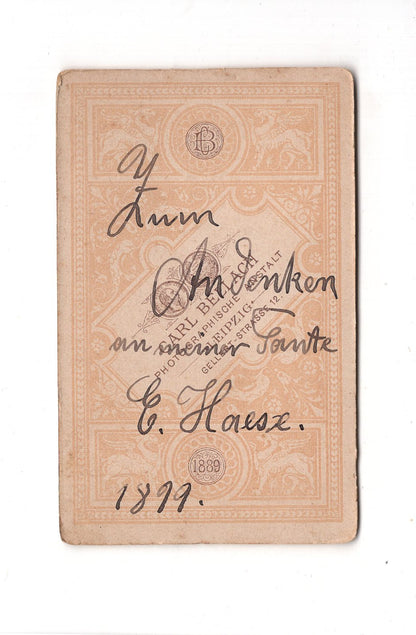 CB
Zum
Andenken
an meiner Tante
E. Haesx.
1899.
CARL BELLACH
PHOTOGRAPHISCHE ANSTALT
LEIPZIG
GELLERT STRASSE 12.
1889